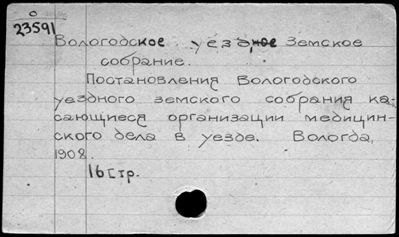 23591
Вологодское уездное Земское
собрание.
Постановления Вологодского
уездного земского собрания ка-
сающиеся организации медицин-
ского дела в уезде. Вологда,
1908.
16 стр.